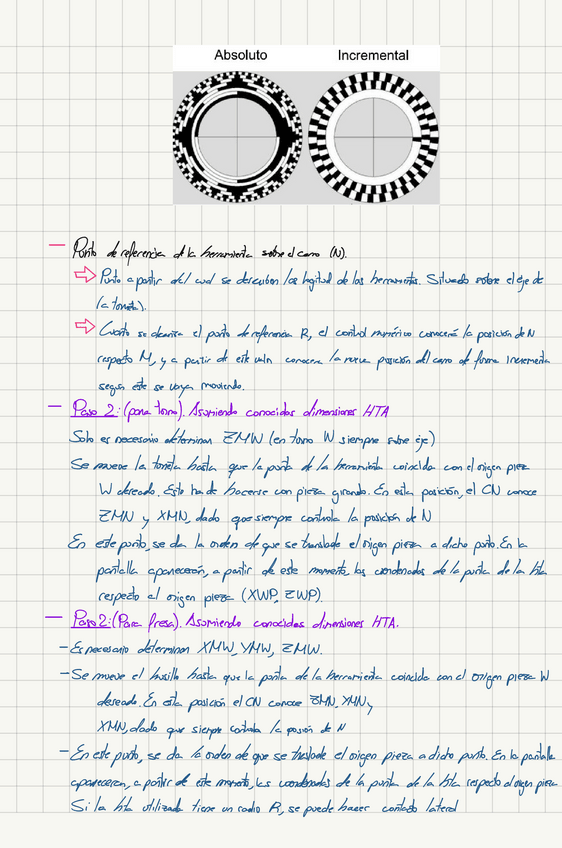 Absoluto Incremental
— Punto de referencia de la herramienta sobre el carro (N).
⇒ Punto a partir del cual se describen las logitud de las herramientas. Situado sobre el eje de
la torreta).
⇒ Cuanto se alcanza el punto de referencia R, el control numérico conocerá la posición de N
respecto M, y a partir de este valor conocera la nueva posición del carro de forma incrementa
segun este se vayan moviendo.
— Paso 2: (para torno). Asumiendo conocidas dimensiones HTA
Solo es necesario determinar ZMW (en torno W siempre sobre eje)
Se mueve la torreta hasta que la punta de la herramienta coincida con el origen pieza
W deseado. Esto ha de hacerse con pieza girando. En esta posición, el CN conoce
ZMN y XMN, dado que siempre controla la posición de N
En este punto, se da la orden de que se translade el origen pieza a dicho punto. En la
pantalla aparecerán, a partir de este momento, las coordenadas de la punta de la hta
respecto al origen pieza (XWP, ZWP).
— Paso 2: (Para fresa). Asumiendo conocidas dimensiones HTA.
– Es necesario determinar XMW, YMW, ZMW.
– Se mueve el husillo hasta que la punta de la herramienta coincida con el origen pieza W
deseado. En esta posición el CN conoce ZMN, YMN y
XMN, dado que siempre controla la posión de N
– En este punto, se da la orden de que se traslade el origen pieza a dicho punto. En la pantalla
apareceran, a partir de este momento, las coordenadas de la punta de la hta respecto al origen pieza
Si la hta utilizada tiene un radio R, se puede hacer contacto lateral